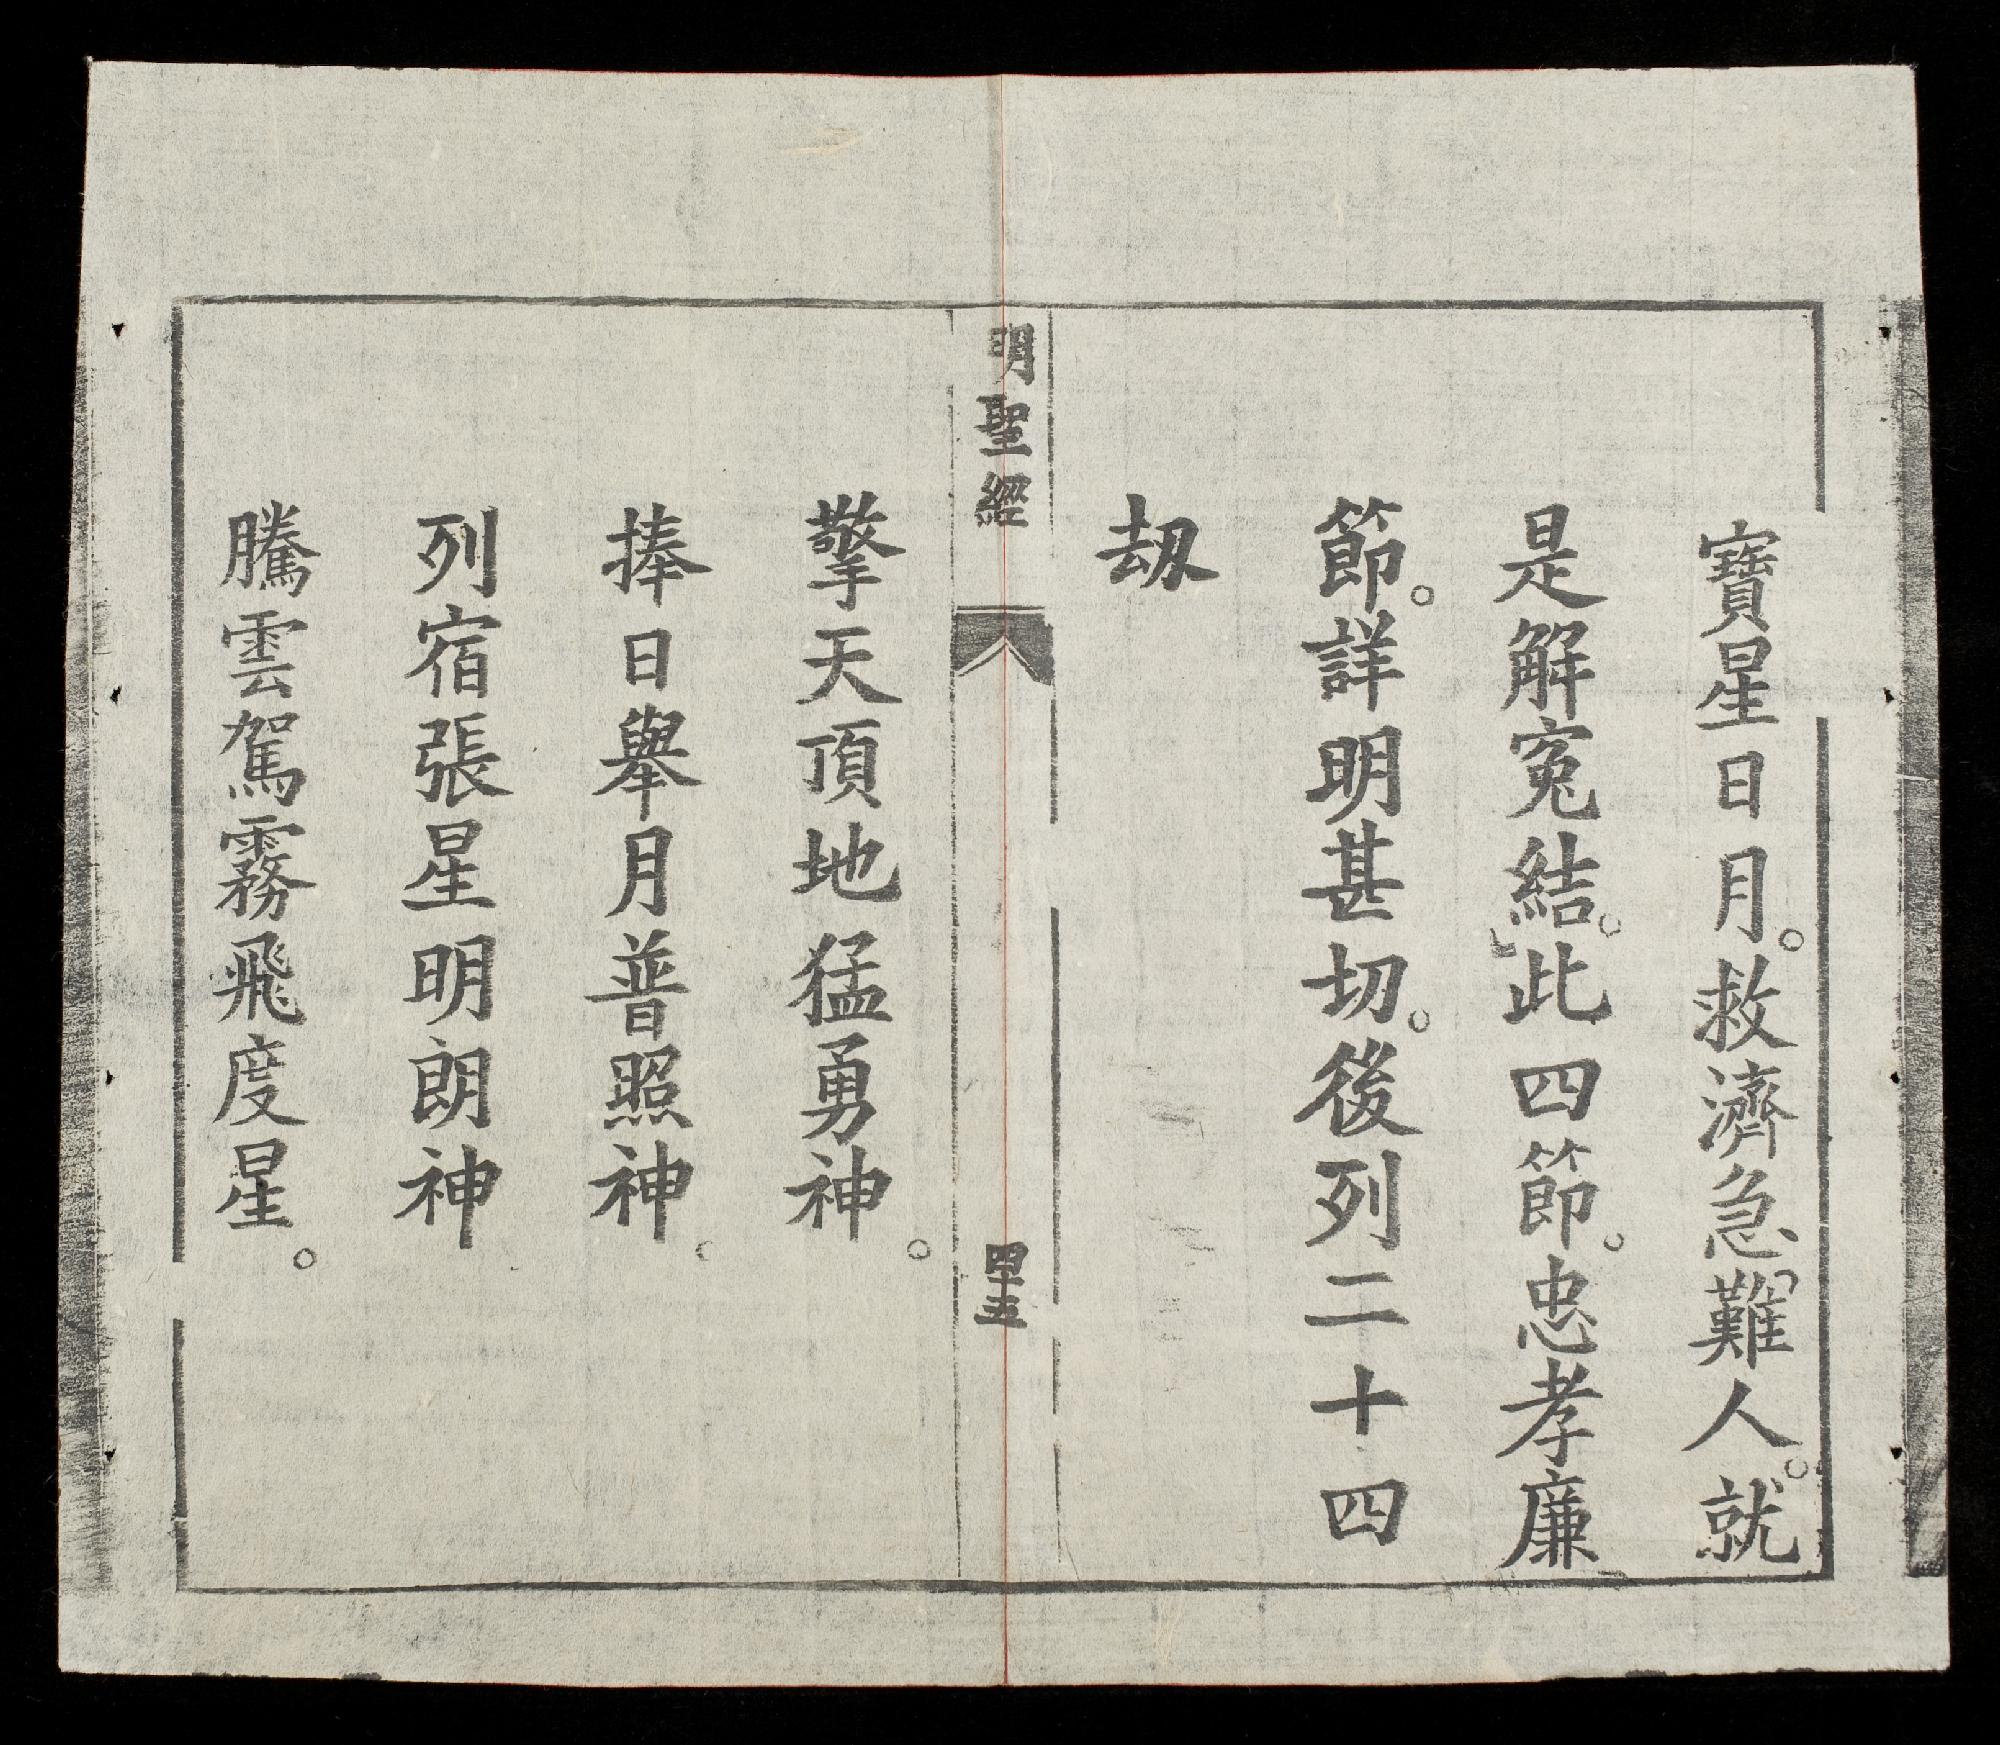 寶星日月。救濟急難人。就
是解寃結。此四節。忠孝廉
節。詳明甚切。後列二十四
刼
明聖經
四十五
擎天頂地猛勇神。
捧日舉月普照神。
列宿張星明朗神
騰雲駕霧飛度星。